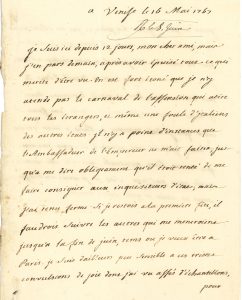 a Venise le 16 Mai 1767
Je suis ici depuis 12 jours, mon cher ami, mais
j'en pars demain, après avoir épuisé tout ce qui
mérite d'être vu. On me fait tort que je n'y
attende pas le carnaval de l'ascension qui attire
tous les étrangers, et même une foule d'italiens
des autres etats. il n'y a point d'instances que
l'Ambassadeur de l'Empereur ne m'ait faites, jus
qu'à me dire obligeamment qu'il étoit tenté de me
faire consigner aux inquisiteurs d'état, mais
j'ai tenu ferme. Si je restois à la première fête, il
faudroit suivre les autres qui me meneroient
jusqu'à la fin de juin, tems où je veux être à
Paris. je suis d'ailleurs peu sensible à ces
convulsions de joie dont j'ai vu assés d'échantillons,
pour